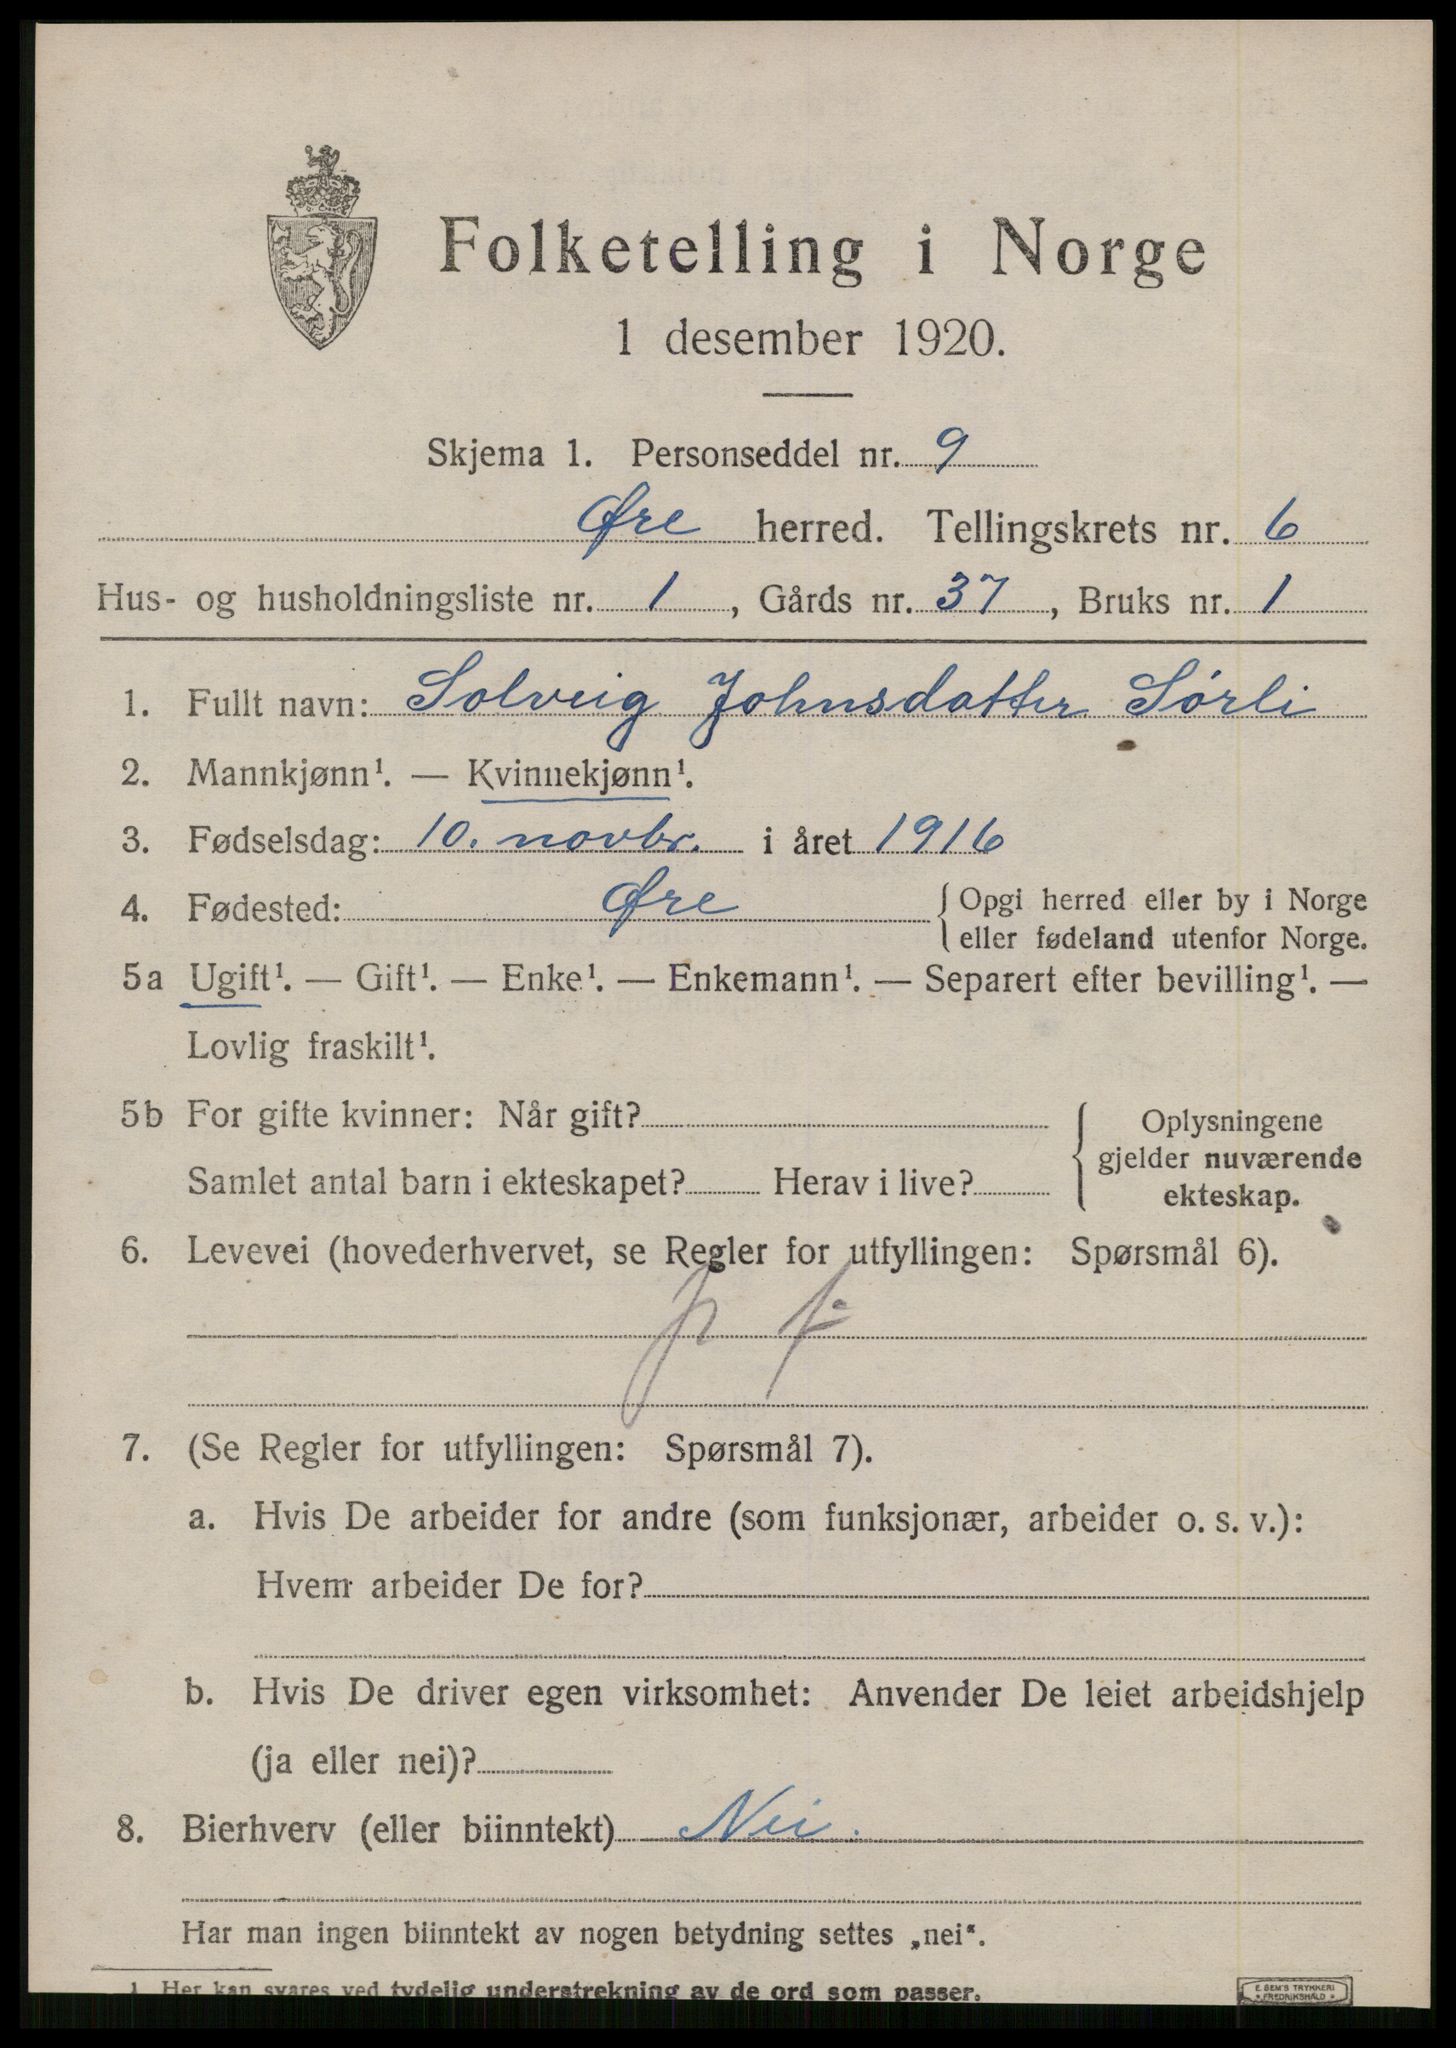 Folketelling i Norge
1 desember 1920.
Skjema 1. Personseddel nr. 9
Øre herred. Tellingskrets nr. 6
Hus- og husholdningsliste nr. 1, Gårds nr. 37, Bruks nr. 1
1. Fullt navn: Solveig Johnsdatter Sörli
2. Mannkjønn¹. — Kvinnekjønn¹.
3. Fødselsdag: 10. novbr. i året 1916
4. Fødested: Øre { Opgi herred eller by i Norge
eller fødeland utenfor Norge.
5a Ugift¹. — Gift¹. — Enke¹. — Enkemann¹. — Separert efter bevilling¹. —
Lovlig fraskilt¹.
5b For gifte kvinner: Når gift?
Samlet antal barn i ekteskapet? Herav i live?
{ Oplysningene
gjelder nuværende
ekteskap.
6. Levevei (hovederhvervet, se Regler for utfyllingen: Spørsmål 6).
7. (Se Regler for utfyllingen: Spørsmål 7).
a. Hvis De arbeider for andre (som funksjonær, arbeider o. s. v.):
Hvem arbeider De for?
b. Hvis De driver egen virksomhet: Anvender De leiet arbeidshjelp
(ja eller nei)?
8. Bierhverv (eller biinntekt) Nei.
Har man ingen biinntekt av nogen betydning settes „nei“.
1 Her kan svares ved tydelig understrekning av de ord som passer.
E. SEM'S TRYKKERI
FREDRIKSHALD